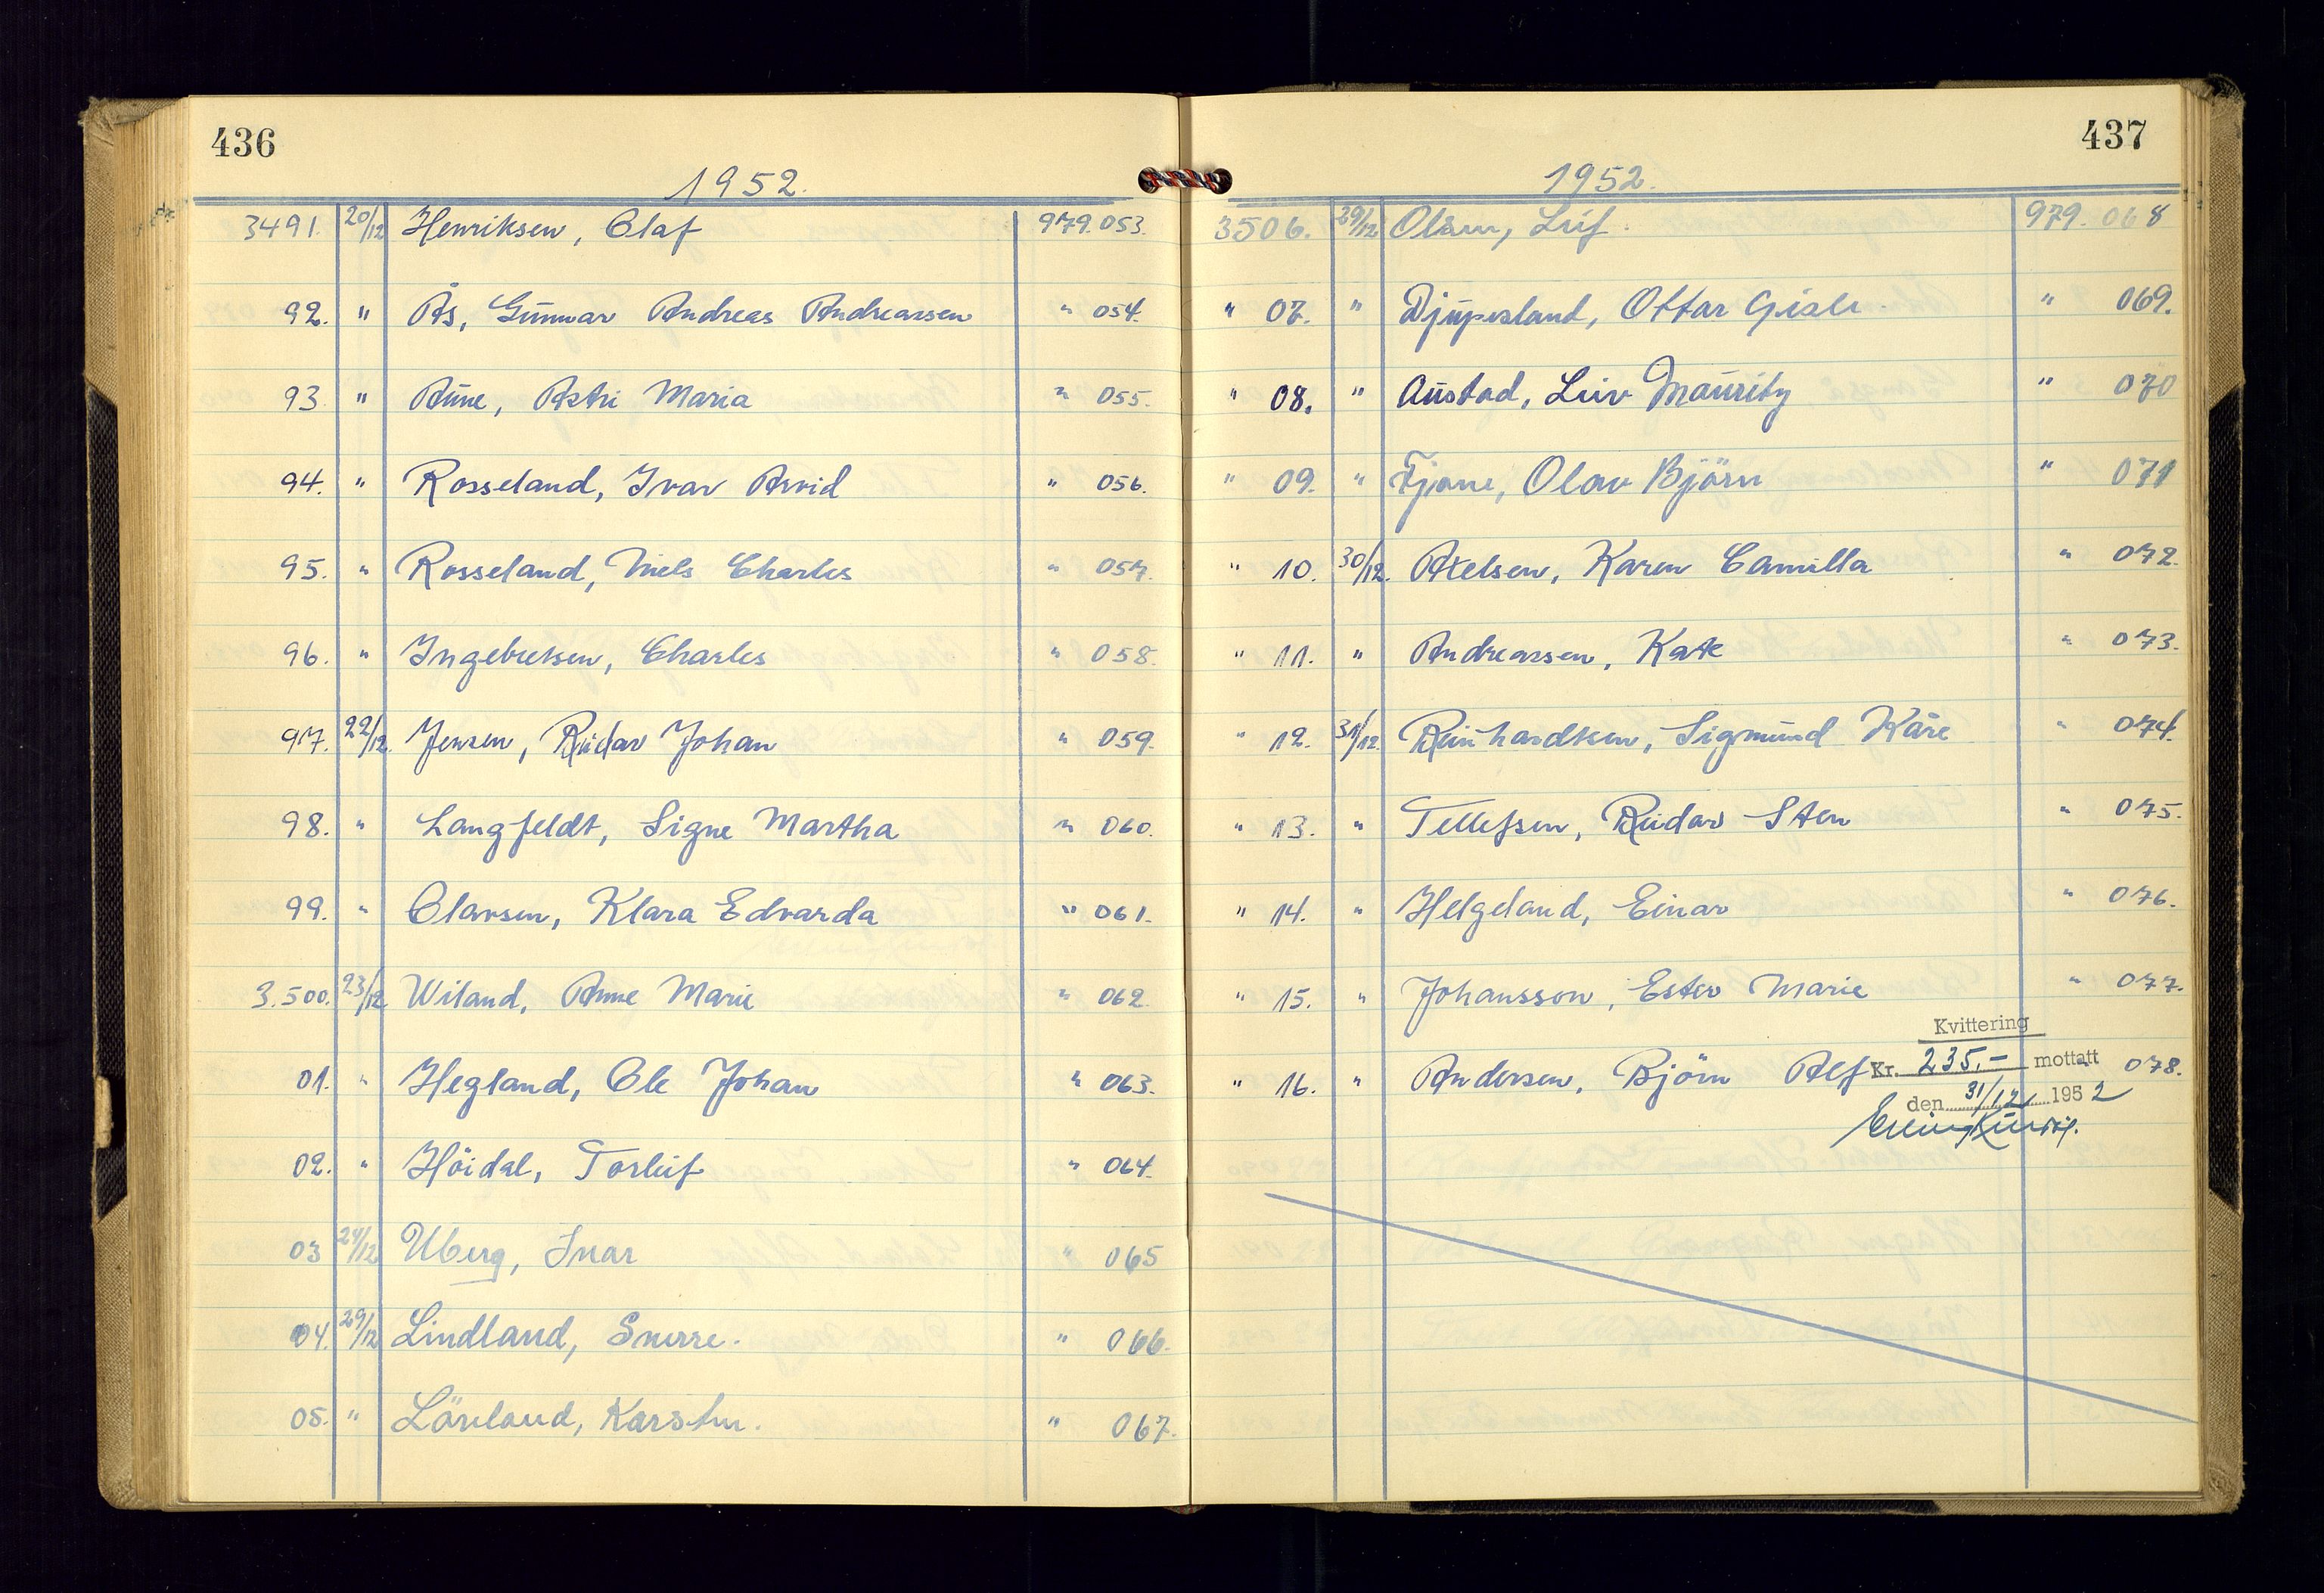 436
1952.
3491. 20/12 Henriksen, Olaf 979.053.
92. " Ås, Gunnar Andreas Andreassen " 054.
93. " Aune, Astri Maria " 055.
94. " Rosseland, Ivar Arvid " 056.
95. " Rosseland, Niels Charles " 057.
96. " Ingebretsen, Charles " 058.
97. 22/12. Jensen, Reidar Johan " 059.
98. " Langfeldt, Signe Martha " 060.
99. " Olavsen, Klara Edvarda " 061.
3.500. 23/12 Wiland, Anne Marie " 062.
01. " Hegland, Ole Johan " 063.
02. " Höidal, Torleif " 064.
03 24/12 Uberg, Ivar " 065
04. 29/12 Lindland, Snorre. " 066.
05. " Löveland, Karsten. " 067.
437
1952.
3506. 29/12 Olsen, Leif. 979.068
" 07. " Djupesland, Ottar Gisle. " 069.
" 08. " Austad, Leiv Mauritz " 070
" 09. " Tjane, Olav Björn " 071
" 10. 30/12. Axelsen, Karen Camilla " 072.
" 11. " Andreassen, Kate " 073.
" 12. 31/12. Reinhardtsen, Sigmund Kåre " 074.
" 13. " Tellefsen, Reidar Sten " 075.
" 14. " Helgeland, Einar " 076.
" 15. " Johansson, Ester Marie " 077.
Kvittering
" 16. " Andersen, Björn Alf Kr. 235.- mottatt 078.
den 31/12 1952